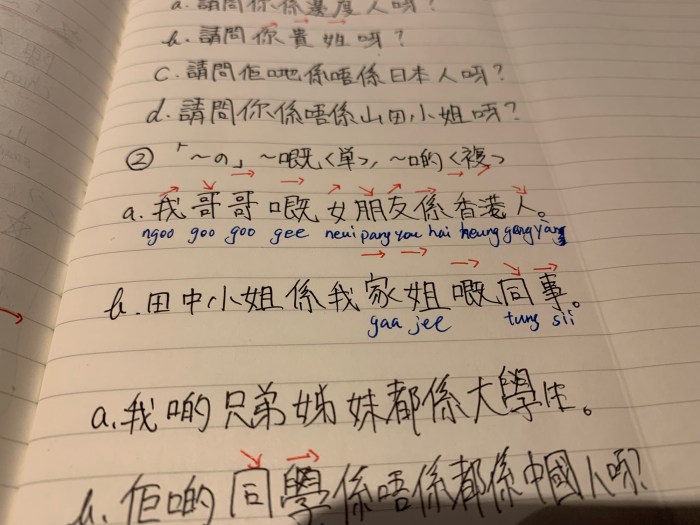 a. 請問你係邊度人呀?
b. 請問你貴姓呀?
c. 請問佢哋係唔係日本人呀?
d. 請問你係唔係山田小姐呀?
② 「~の」 ~嘅<単>, ~啲<複>
a. 我哥哥嘅女朋友係香港人。
ngoo goo goo gee neui pang you hai heung gong yang
b. 田中小姐係我家姐嘅同事。
gaa jee tung sii
a. 我啲兄弟姊妹都係大學生。
b. 佢啲同學係唔係都係中國人呀?